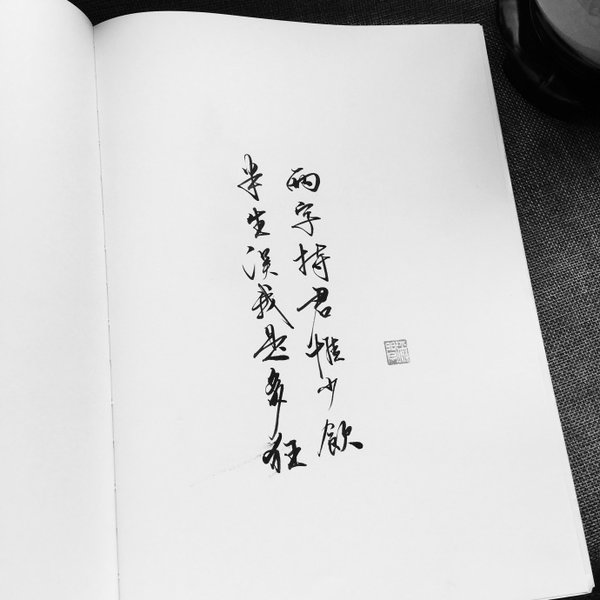 两字持君惟少飲
半生误我是多狂